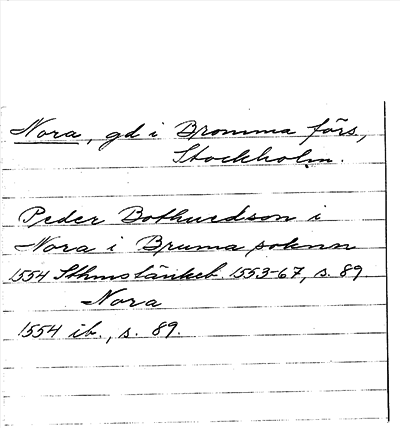 Nora, gd i Bromma förs,
Stockholm.
Peder Bothuedson i
Nora i Bruma soknn
1554 Sthms tänkeb. 1553-67, s. 89.
Nora
1554 ib., s. 89.